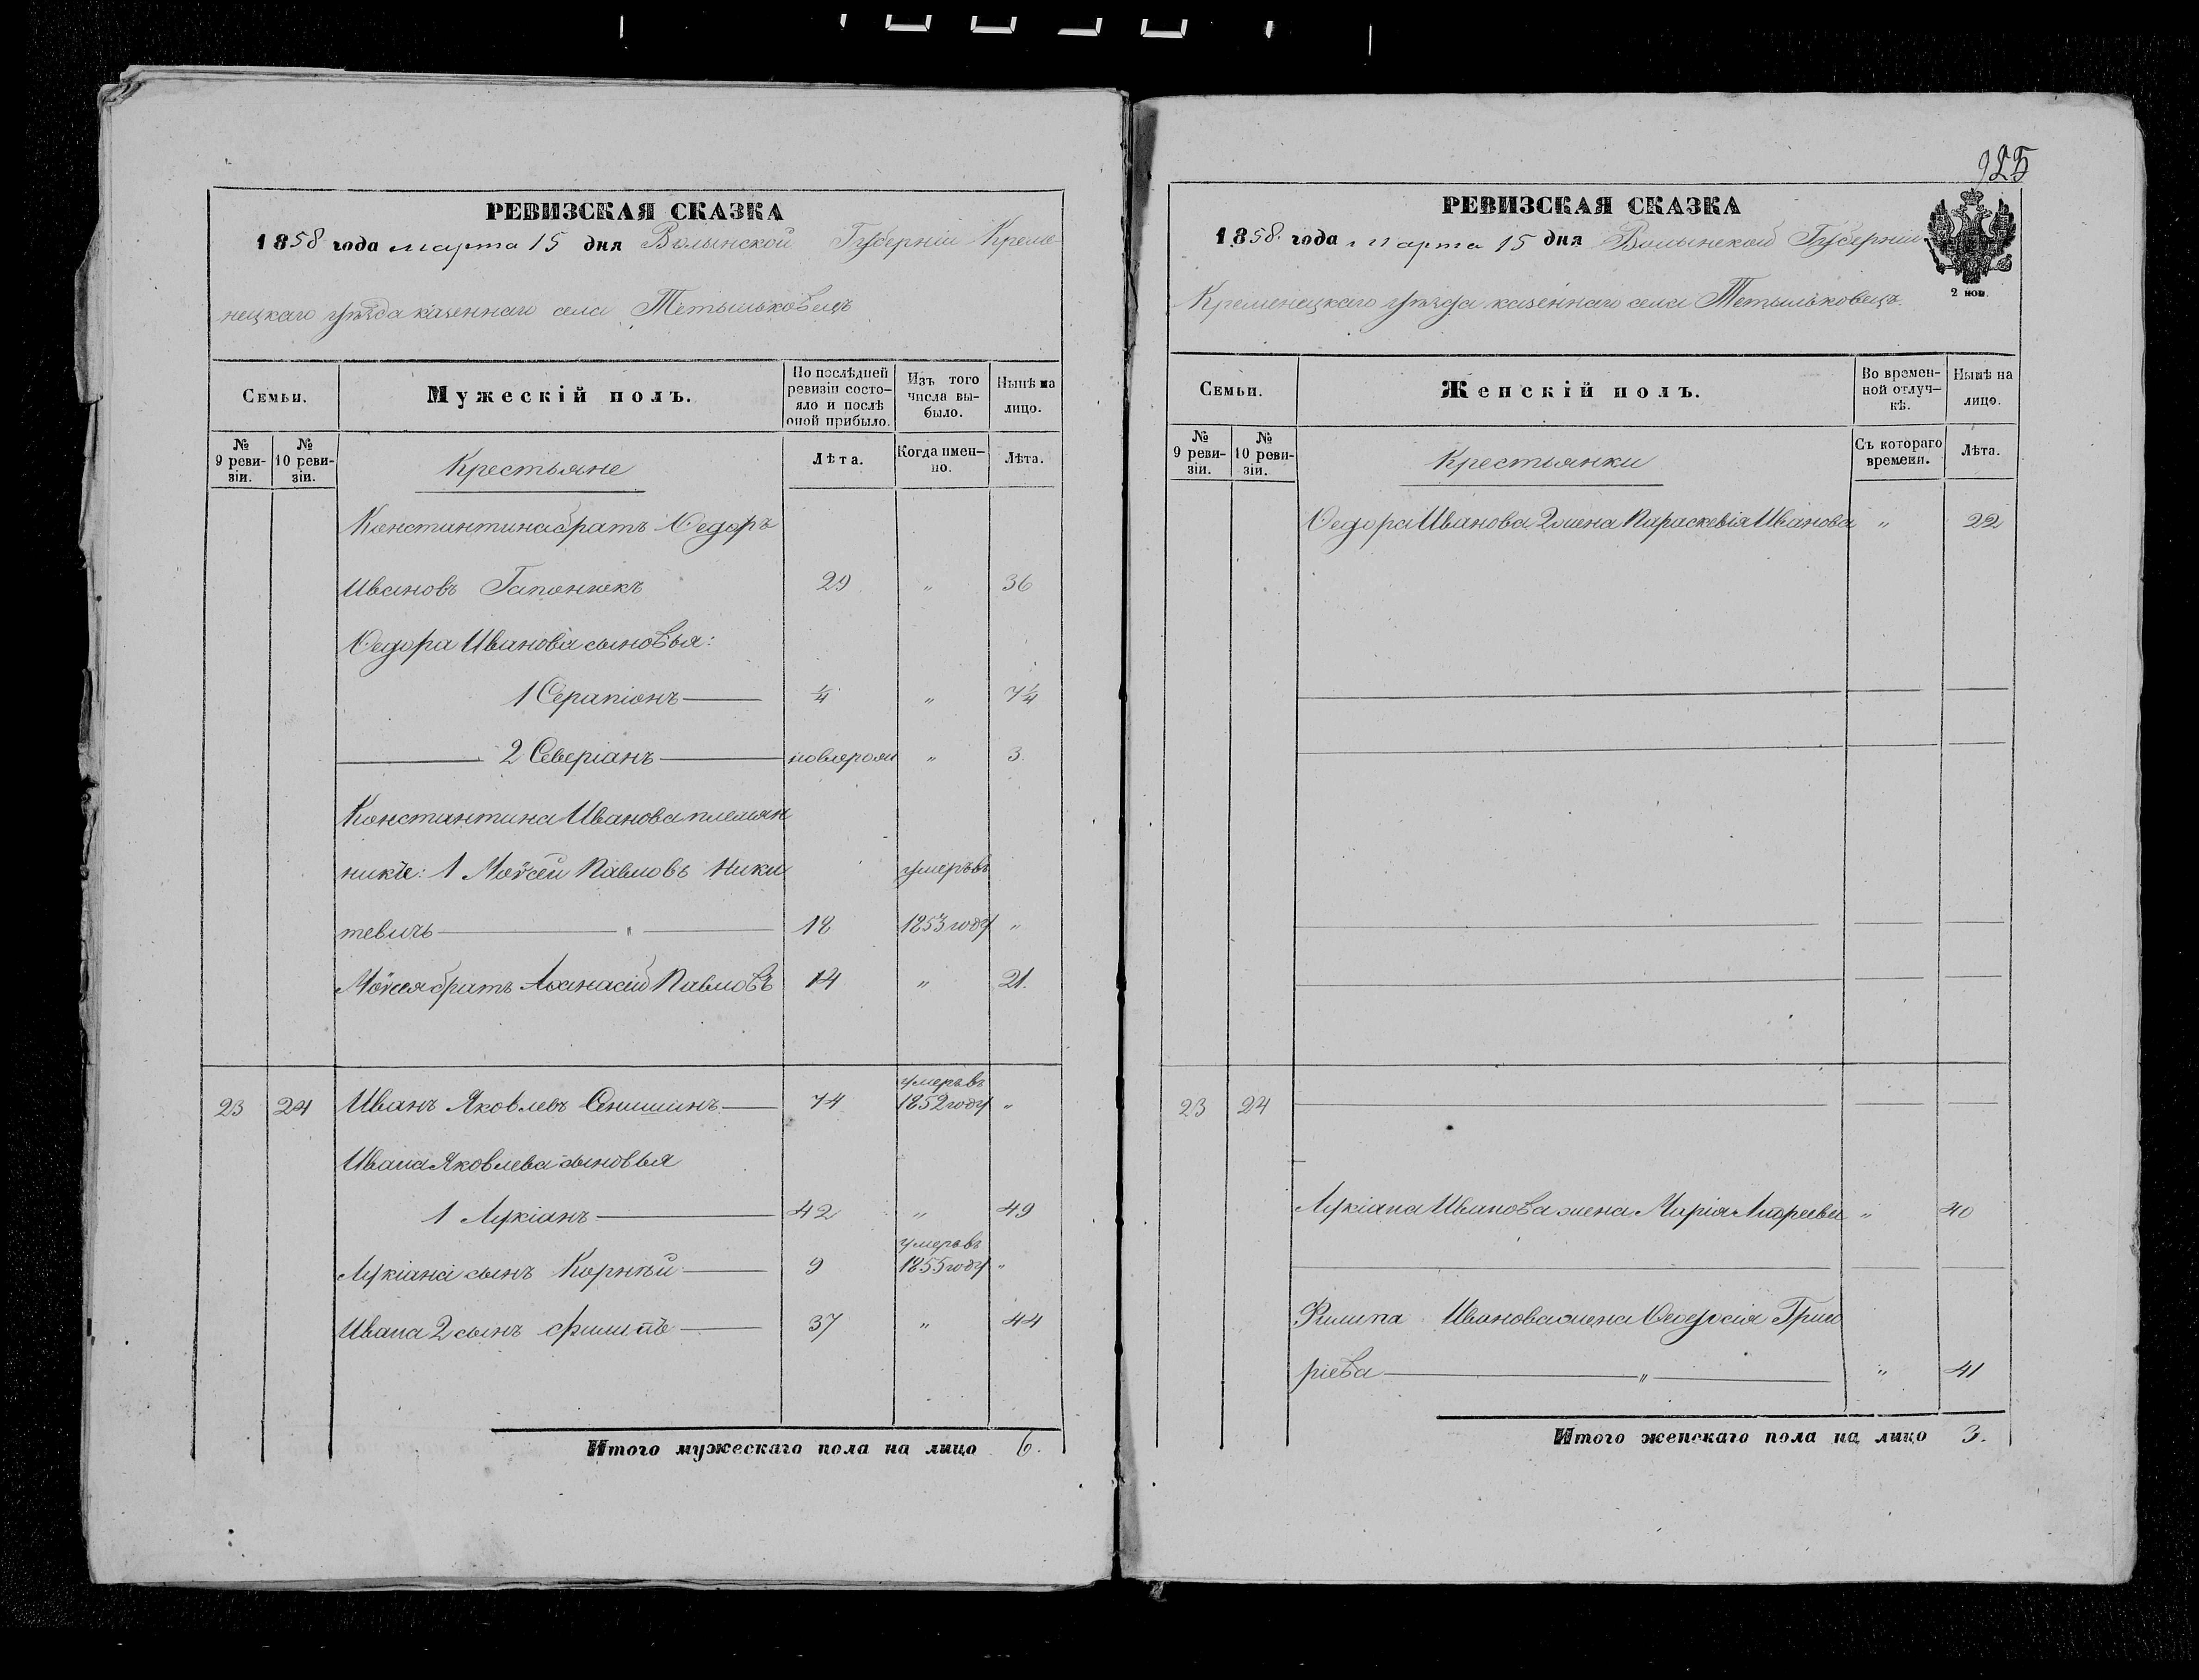 925
РЕВИЗСКАЯ СКАЗКА
1858 года марта 15 дня Волынской Губерніи Креме-
нецкаго уѣзда казеннаго села Тетыльковецъ
Семьи.
Мужескій полъ.
По послѣдней ревизіи состо-
яло и послѣ оной прибыло.
Изъ того числа вы-
было.
Нынѣ на лицо.
№ 9 реви-
зіи.
№ 10 реви-
зіи.
Крестьяне
Лѣта.
Когда имен-
но.
Лѣта.
Константина братъ Ѳедоръ
Ивановъ Гапонюкъ 29 " 36
Ѳедора Иванова сыновья:
1 Серапіонъ ¼ " 7¼
2 Северіанъ новорож " 3.
Константина Иванова племян
ники: 1 Моѵсей Павловъ Ники умеръ въ
тевичъ " 18 1853 году "
Моѵсея братъ Аѳанасій Павловъ 14 " 21.
умеръ въ
23 24 Иванъ Яковлевъ Сенишинъ 74 1852 году "
Ивана Яковлева сыновья
1 Лукіанъ 42 " 49
умеръ въ
Лукіана сынъ Корнѣй 9 1855 году "
Ивана 2 сынъ Филипъ 37 " 44
Итого мужескаго пола на лицо 6.
РЕВИЗСКАЯ СКАЗКА
1858. года марта 15 дня Волынской Губерніи
2 коп.
Кременецкаго уѣзда казеннаго села Тетыльковецъ.
Семьи.
Женскій полъ.
Во времен-
ной отлуч-
кѣ.
Нынѣ на лицо.
№ 9 реви-
зіи.
№ 10 реви-
зіи.
Крестьянки
Съ котораго времени.
Лѣта.
Ѳедора Иванова 2 жена Параскевія Иванова " 22
23 24
Лукіана Иванова жена Марія Андреева " 40
Филипа Иванова жена Ѳеодосія Григо
ріева " " 41
Итого женскаго пола на лицо 3.